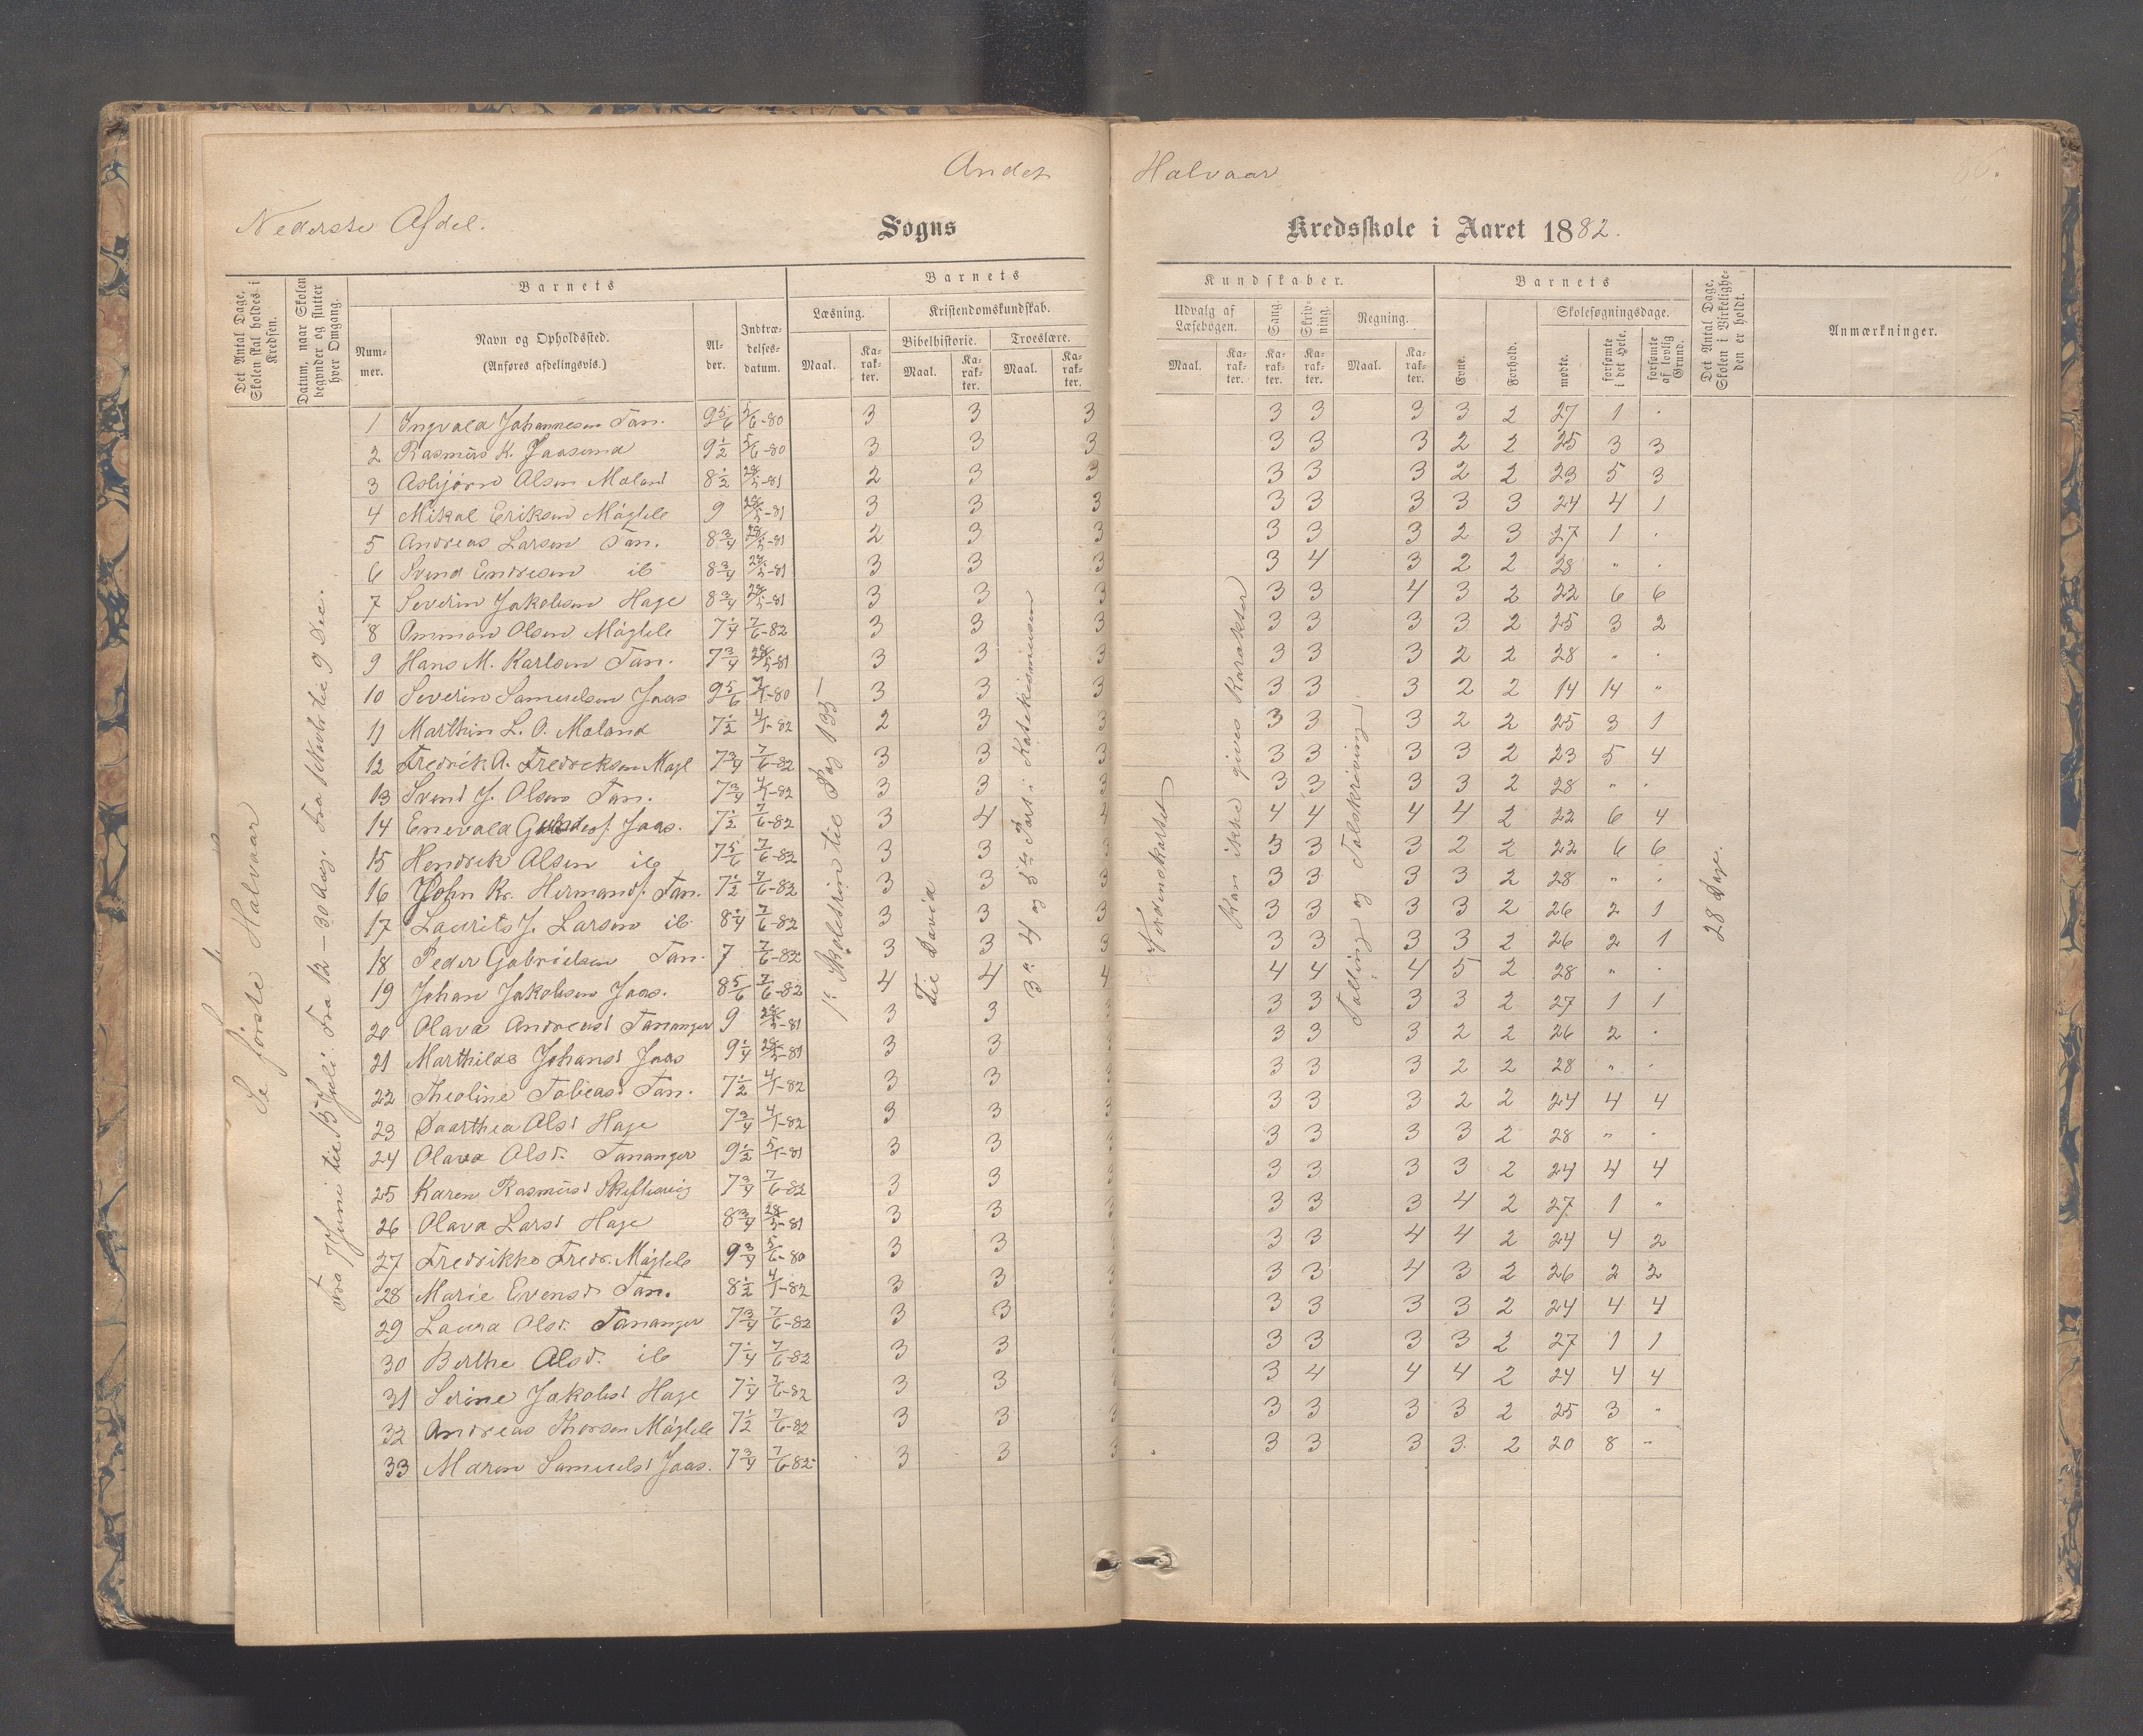 Andet Halvaar
86.
Nederste Afdel. Sogns Kredsskole i Aaret 1882.
Det Antal Dage, Skolen skal holdes i Kredsen.
Datum, naar Skolen begynder og slutter hver Omgang.
Barnets
Nummer.
Navn og Opholdssted.
(Anføres afdelingsvis.)
Alder.
Indtrædelsesdatum.
Barnets Kundskaber.
Læsning.
Maal. Karakter.
Kristendomskundskab.
Bibelhistorie. Troeslære.
Maal. Karakter. Maal. Karakter.
Udvalg af Læsebogen.
Maal. Karakter.
Sang. Karakter.
Skrivning. Karakter.
Regning.
Maal. Karakter.
Barnets
Evne. Forhold.
Skolesøgningsdage.
mødte. forsømte i det Hele. forsømte af lovlig Grund.
Det Antal Dage, Skolen i Virkeligheden er holdt.
Anmærkninger.
Se første Halvaar
Fra 7 Juni til 15 Juli. Fra 12 - 30 Aug. Fra 1 Novbr til 9 Dec.
1ste Skoletrin til Pag 135
Til David
3die 4 og 5te Part i Katekismusen
Verdenskartet
Kan ikke gives Karakter
Tælling og Talskrivning
28 Dage.
1 Ingvald Johannesen Tan. 9 5/6 5/6-80 3 3 3 3 3 3 3 2 27 1 .
2 Rasmus K. Jaasund 9 1/2 5/6-80 3 3 3 3 3 3 2 2 25 3 3
3 Asbjørn Olsen Moland 8 1/2 28/5-81 2 3 3 3 3 3 2 2 23 5 3
4 Mikal Eriksen Mågleb 9 28/5-81 3 3 3 3 3 3 3 3 24 4 1
5 Andreas Larsen Tan. 8 3/4 28/5-81 2 3 3 3 3 3 2 3 27 1 .
6 Svend Endresen ib 8 3/4 28/5-81 3 3 3 3 4 3 2 2 28 " .
7 Severin Jakobsen Hage 8 3/4 28/5-81 3 3 3 3 3 4 3 2 22 6 6
8 Ommon Olsen Mågleb 7 1/4 7/6-82 3 3 3 3 3 3 3 2 25 3 2
9 Hans M. Karlsen Tan. 7 3/4 28/5-81 3 3 3 3 3 3 2 2 28 " .
10 Severin Samuelsen Jaas 9 5/6 7/1-80 3 3 3 3 3 3 2 2 14 14 "
11 Marthin L. O. Moland 7 1/2 4/1-82 2 3 3 3 3 3 2 2 25 3 1
12 Fredrik A. Fredreksen Magl 7 3/4 7/6-82 3 3 3 3 3 3 3 2 23 5 4
13 Svend J. Olsen Tan. 7 3/4 4/1-82 3 3 3 3 3 3 3 2 28 " .
14 Enevald Jaas. 7 1/2 7/6-82 3 4 4 4 4 4 4 2 22 6 4
15 Hendrik Olsen ib 7 5/6 7/6-82 3 3 3 3 3 3 2 2 22 6 6
16 John Kr. Hermands. Tan. 7 1/2 7/6-82 3 3 3 3 3 3 3 2 28 " .
17 Laurits J. Larsen ib 8 1/4 7/6-82 3 3 3 3 3 3 3 2 26 2 1
18 Peder Gabrielsen Tan. 7 7/6-82 3 3 3 3 3 3 3 2 26 2 1
19 Johan Jakobsen Jaas. 8 5/6 7/6-82 4 4 4 4 4 4 5 2 28 " .
20 Olava Andreasd Tananger 9 28/5-81 3 3 3 3 3 3 2 27 1 1
21 Marthilde Johansd Jaas 9 1/4 28/5-81 3 3 3 3 3 2 2 26 2 .
22 Theoline Tobiasd Tan. 7 1/2 4/1-82 3 3 3 3 3 2 2 28 " .
23 Daarthea Olsd Hage 7 3/4 4/1-82 3 3 3 3 3 2 2 24 4 4
24 Olava Olsd. Tananger 9 1/2 5/1-81 3 3 3 3 3 3 2 28 " .
25 Karen Rasmusd Skiftesvig 7 3/4 7/6-82 3 3 3 3 3 3 2 24 4 4
26 Olava Larsd Hage 8 3/4 28/5-81 3 3 3 3 3 4 2 27 1 "
27 Fredrikke Fredr. Mågleb 9 3/4 5/6-80 3 3 3 3 4 4 2 24 4 2
28 Marie Evensd. Tan. 8 1/2 4/1-82 3 3 3 3 4 3 2 26 2 2
29 Laura Olsd. Tananger 7 3/4 7/6-82 3 3 3 3 3 3 2 24 4 4
30 Berthe Olsd. ib 7 1/4 7/6-82 3 3 3 3 3 3 2 27 1 1
31 Serine Jakobsd Hage 7 1/4 7/6-82 3 3 3 4 4 4 2 24 4 4
32 Andreas Thorsen Mågleb 7 1/2 7/6-82 3 3 3 3 3 3 3 2 25 3 "
33 Maren Samuelsd Jaas. 7 3/4 7/6-82 3 3 3 3 3 3 3 2 20 8 "